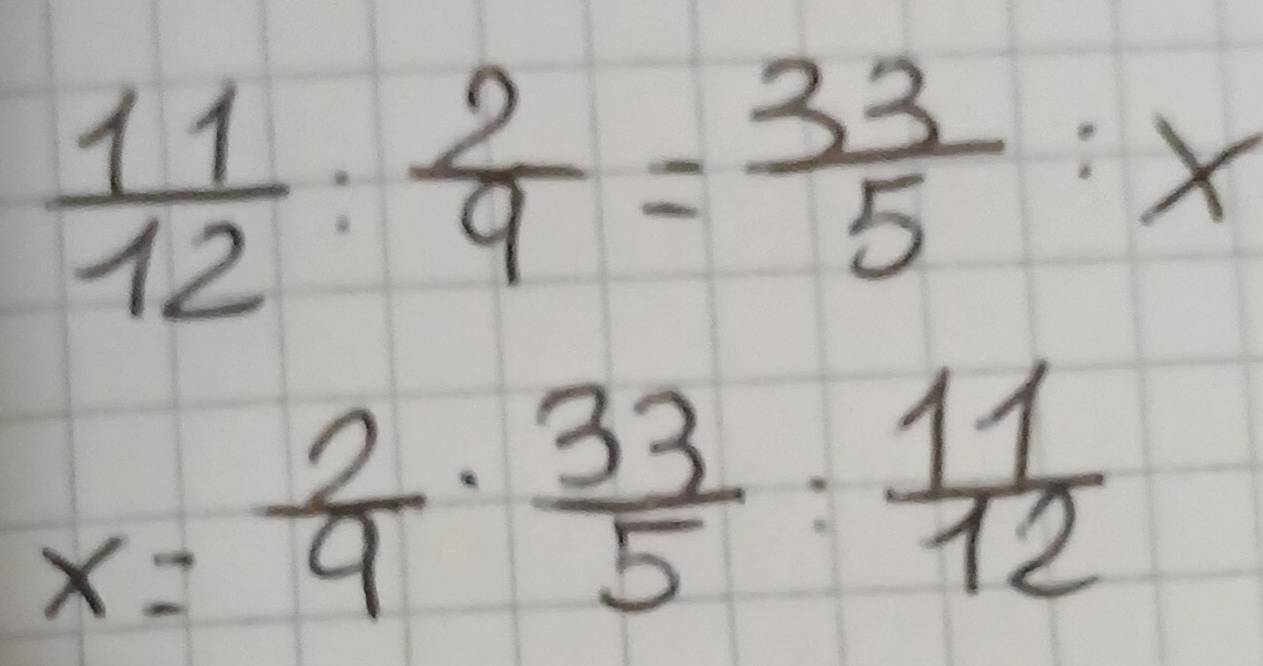 11/12 : 2/9 = 33/5 : x
x = 2/9 · 33/5 : 11/12